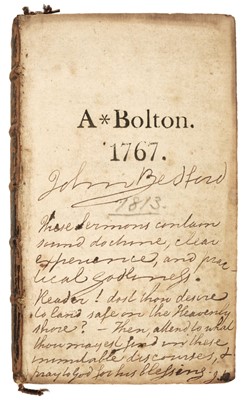 A*Bolton.
1767.
John Bedford
1813.
These Sermons contain
sound doctrine, clear
experience, and prac-
tical godliness.
Reader! dost thou desire
to land safe on the Heavenly
shore? - Then, attend to what
thou mayest find in these
inimitable discourses, &
pray to God for his blessing.